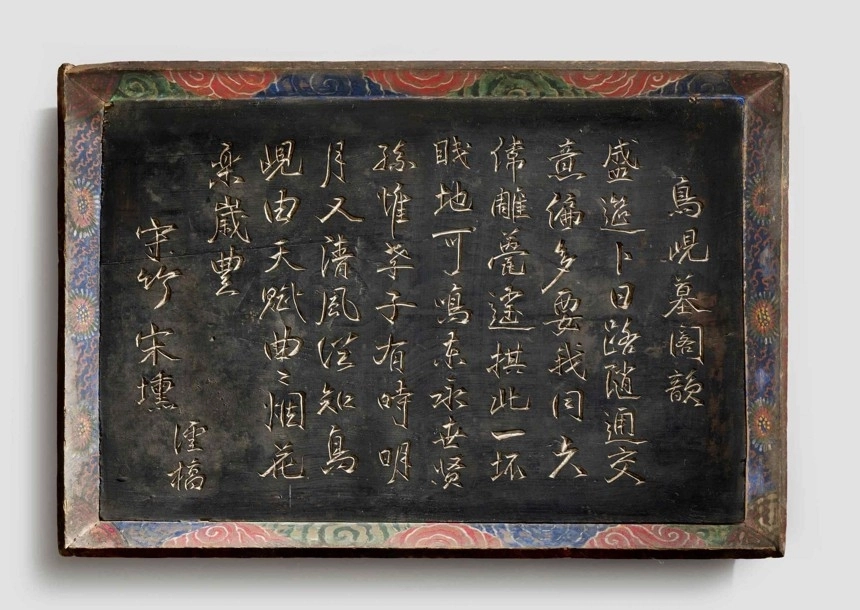 鳥峴墓閣韻
盛遊卜日路隨通交
意偏多要我同
偉雕甍拱此一坏
地可鳴東永世賢
孫惟孝子有時明
月又清風從知鳥
峴由天賦曲〻烟花
楽歲豊
守竹 宋壎